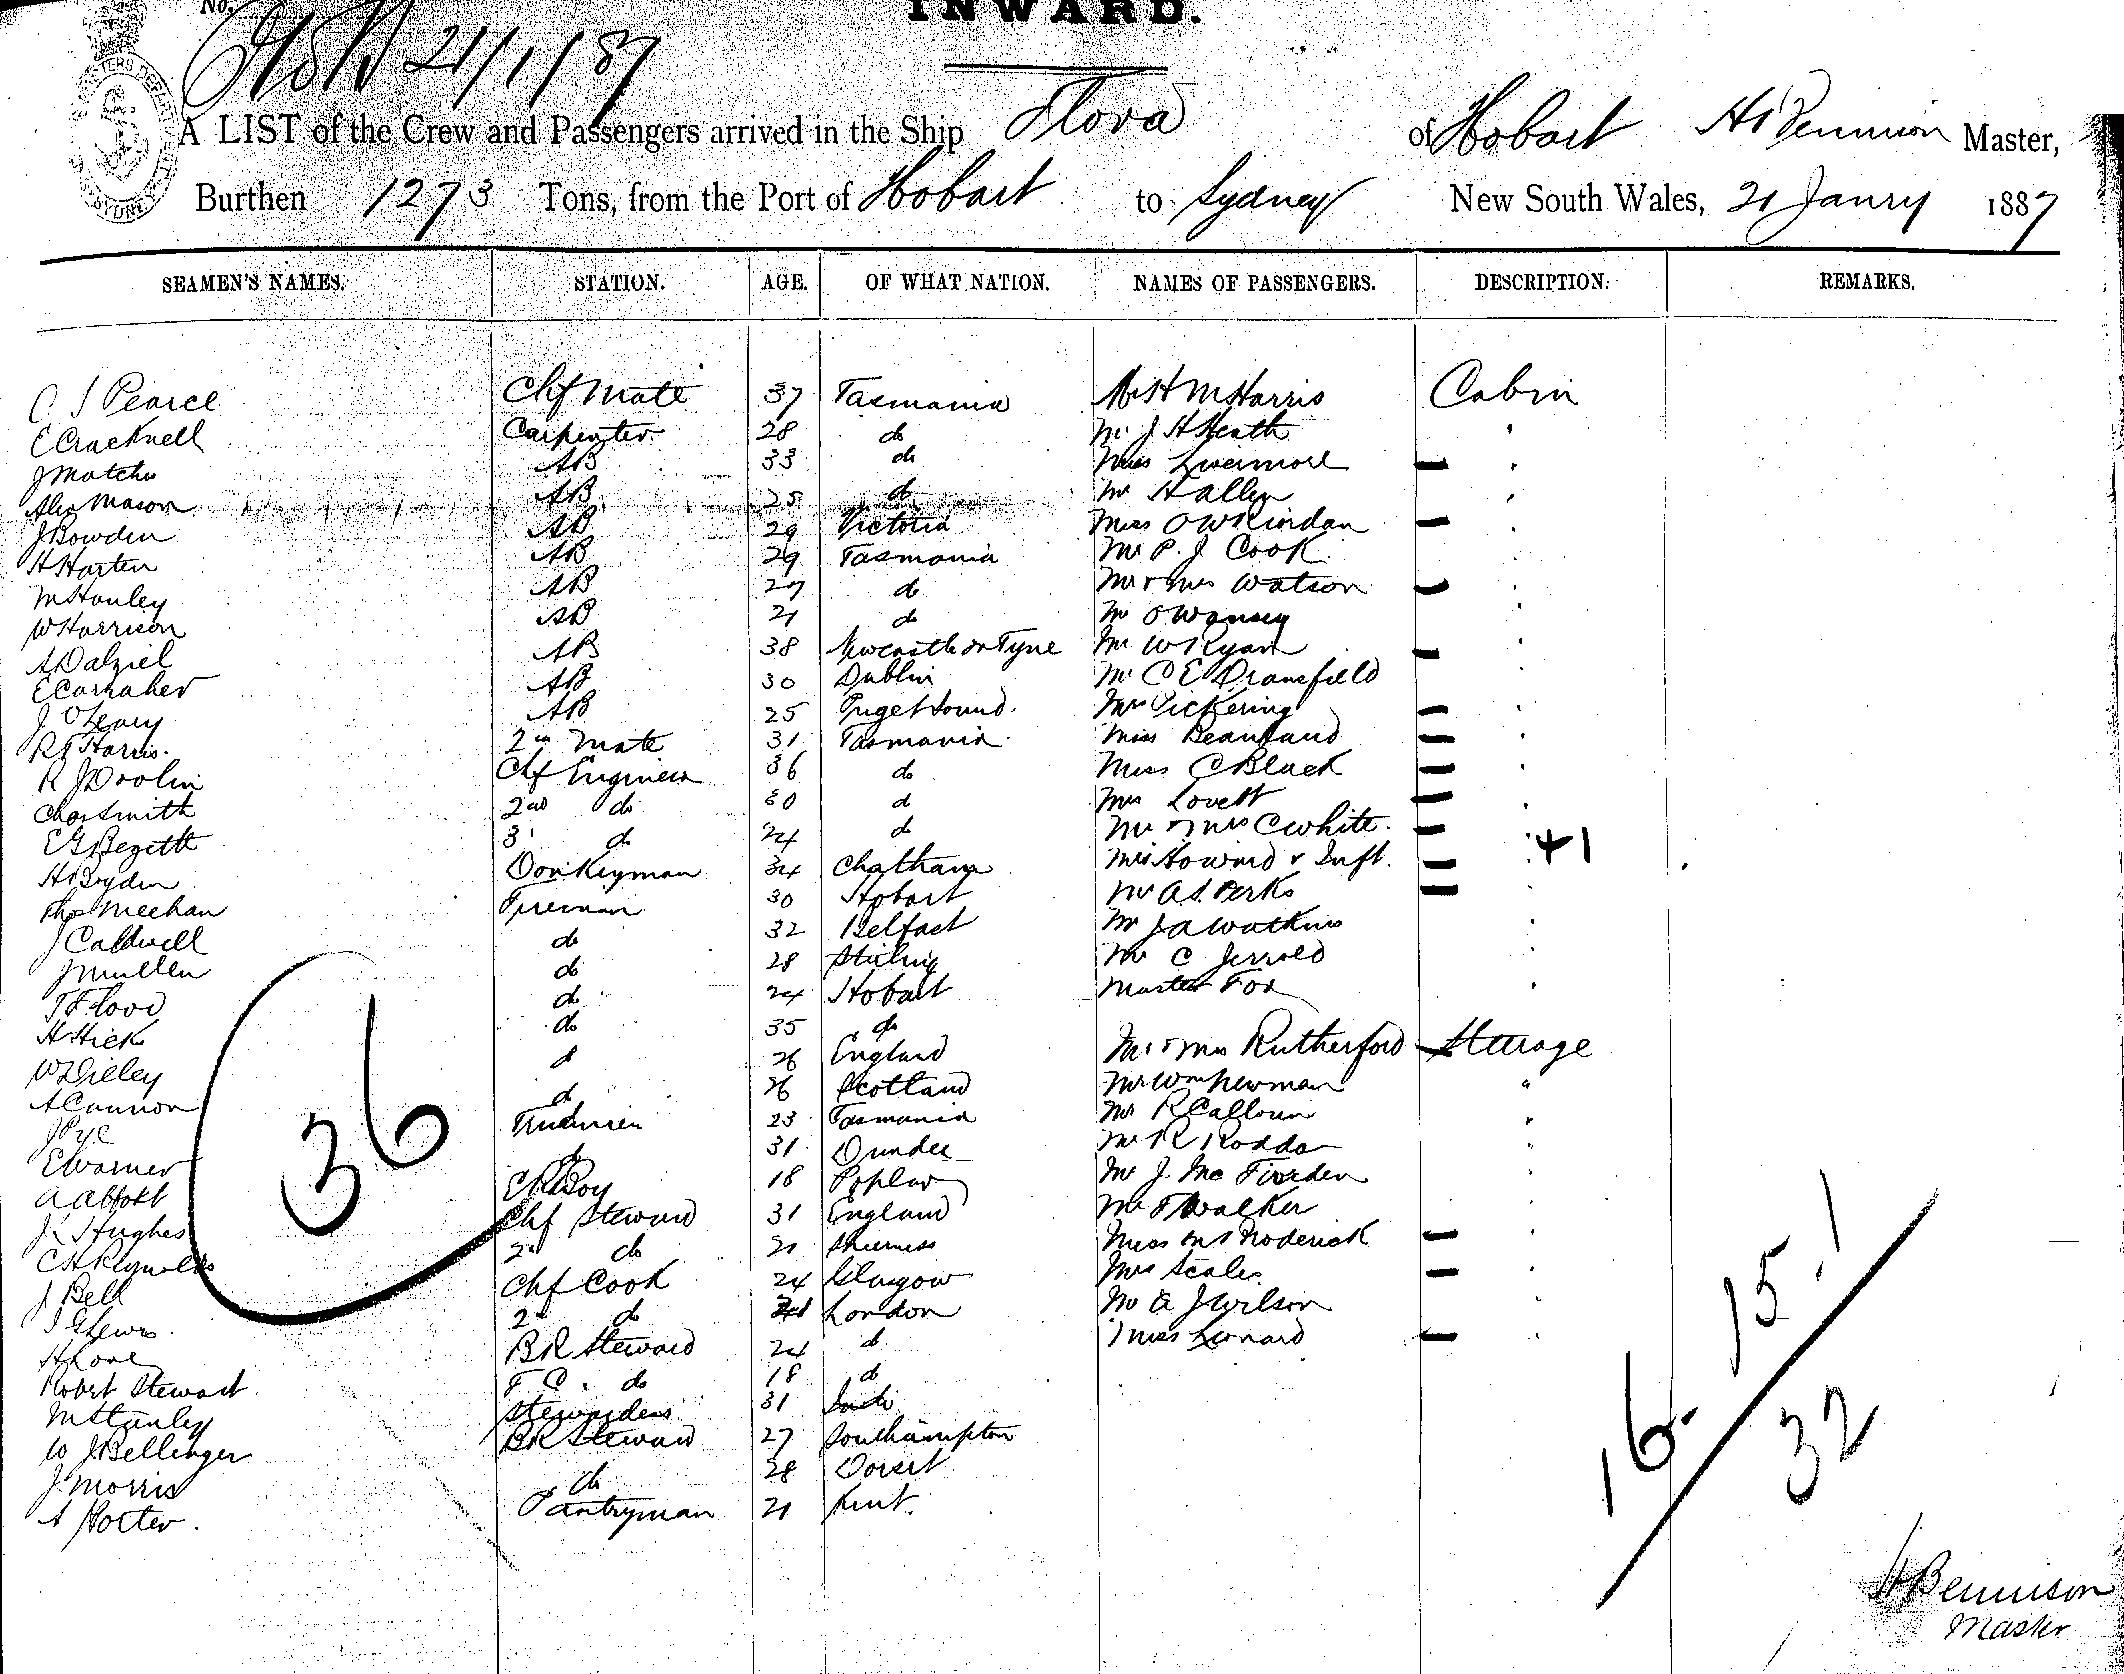 No.
INWARD.
21/1/87
A LIST of the Crew and Passengers arrived in the Ship Flora of Hobart Master,
Burthen 1273 Tons, from the Port of Hobart to Sydney New South Wales, 21 Janry 1887
SEAMEN'S NAMES. STATION. AGE. OF WHAT NATION. NAMES OF PASSENGERS. DESCRIPTION. REMARKS.
C J Pearce Chf Mate 37 Tasmania Mr H M Harris Cabin
E Cracknell Carpenter 28 do Mr J H Heath "
J Matches AB 33 do Miss Livermore — "
Alex Mason AB 25 do Mr Hallen "
J Bowden AB 29 Victoria Miss O W Riordan — "
H Harten AB 29 Tasmania Mr P. J. Cook "
M Hanley AB 27 do Mr & Mrs Watson — "
W Harrison AB 21 do Mr
A Dalziel AB 38 Newcastle on Tyne Mr W Ryan — "
E Carraher AB 30 Dublin Mr C E Dransfield
J O'Leary AB 25 Puget Sound. Mrs Pickering — "
R T Harris. 2nd Mate 31 Tasmania Miss —
R J Doolin Chf Engineer 36 do Miss C Black — "
Chas Smith 2nd do 30 d Mrs Lovett — "
E G 3 d 24 d Mr & Mrs C White. —
H Boyden Donkeyman 34 Chatham Mrs Howard & Inft. — 41
Thos Meehan Fireman 30 Hobart Mr A S. Perks —
J Caldwell do 32 Belfast Mr J A Watkins "
J Mullen do 28 Stirling Mr C Jerrold "
T Flood do 24 Hobart Master Fox "
H Hick do 35 do
W Dilley d 26 England Mr & Mrs Rutherford — Steerage
A Cannon d 26 Scotland Mr Wm Newman "
J Pye Trimmer 23 Tasmania Mr R Calhoun "
E Warner do 31 Dundee Mr R Rodda "
A Abbott Boy 18 Poplar Mr J. Mc "
J Hughes Chf Steward 31 England Mr T Walker "
C H Reynolds 2nd do 21 Sheerness Miss Roderick — "
J Bell Chf Cook 24 Glasgow Mrs Scales — "
J G Lewis 2 do London Mr A J Wilson "
H Love BR Steward 24 d Miss Leonard — "
Robert Stewart F C. do 18 d
M Stanley Stewardess 31 India
W J Bellinger BR Steward 27 Southampton
J Morris do 28 Dorset
A Porter. Pantryman 21 Kent.
36
15.1
16.
32
H Bennison
Master